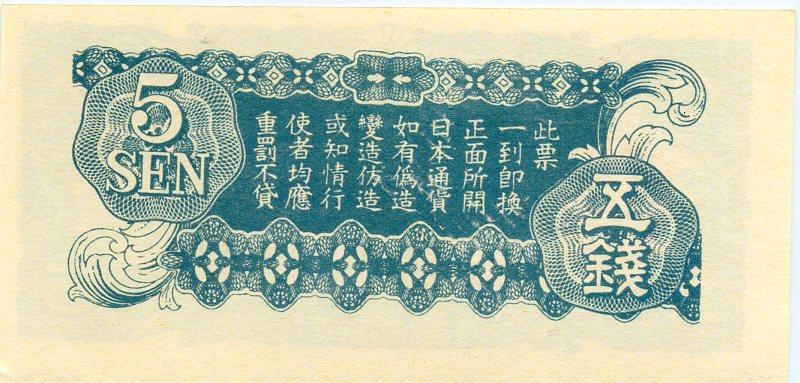 5
SEN
此票
一到即換
正面所開
日本通貨
如有偽造
變造仿造
或知情行
使者均應
重罰不貸
五
錢